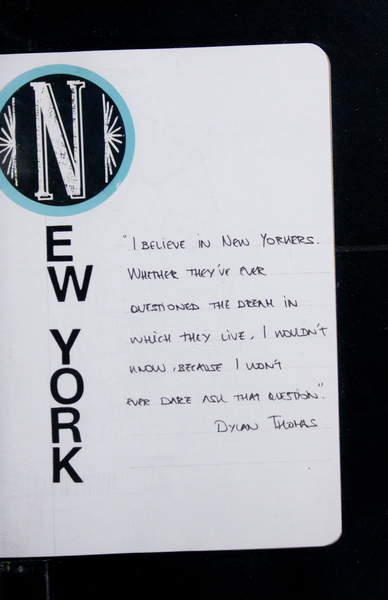 N
EW
YORK
"I BELIEVE IN NEW YORKERS.
WHETHER THEY'VE EVER
QUESTIONED THE DREAM IN
WHICH THEY LIVE, I WOULDN'T
KNOW, BECAUSE I WON'T
EVER DARE ASK THAT QUESTION".
DYLAN THOMAS